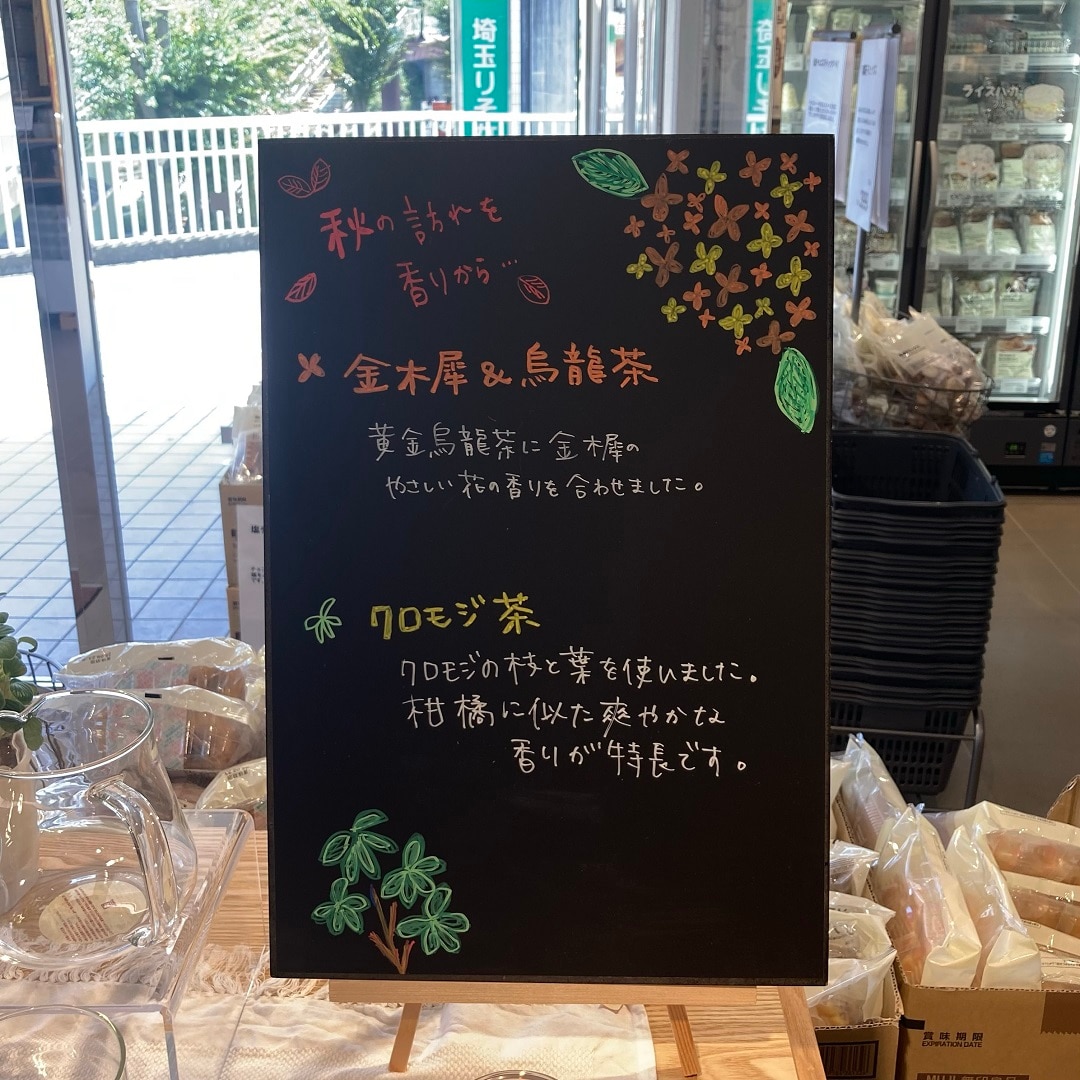 秋の訪れを
香りから…
金木犀&烏龍茶
黄金烏龍茶に金木犀の
やさしい花の香りを合わせました。
クロモジ茶
クロモジの枝と葉を使いました。
柑橘に似た爽やかな
香りが特長です。
埼玉りそ
埼玉りそ
賞味期限
EXPIRATION DATE